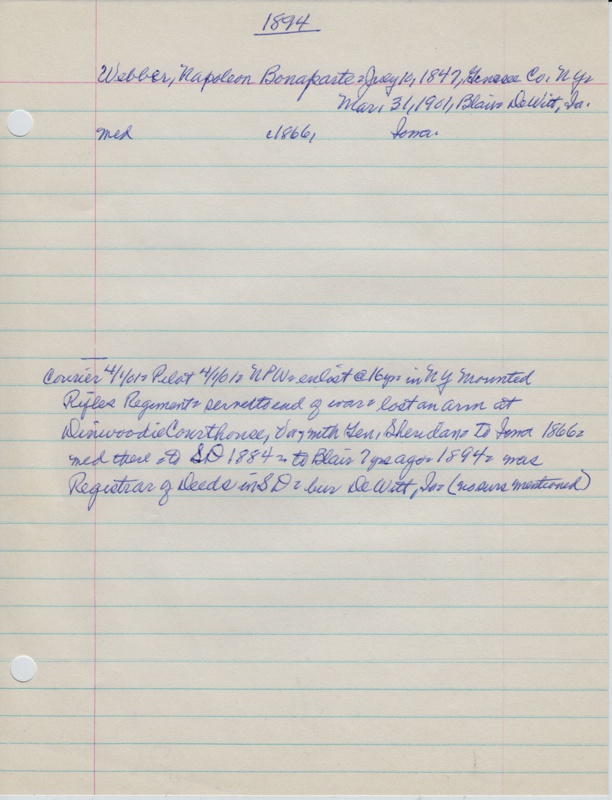 1894
Webber, Napoleon Bonaparte = 1847, Genesee Co., NY=
Mar. 31, 1901, Blair= DeWitt, Ia.
med c1866, Iowa.
Courier 4/1/01= Pilot 4/1/01= NPW= enlist @ 16yr= in NY Mounted
Rifles Regiment= served to end of war= lost an arm at
Dinwoodie Courthouse, Va, with Gen. Sheridan= to Iowa 1866=
med there = to SD 1884 = to Blair 7 yrs ago= 1894= was
Registrar of Deeds in SD= bur DeWitt, Ia= (no surs mentioned)